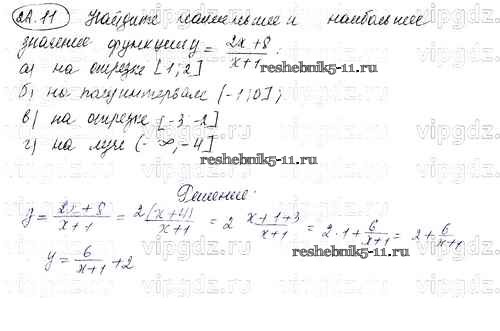 22.11 Найдите наименьшее и наибольшее
значение функции y = \frac{2x+8}{x+1}:
а) на отрезке [1; 2]
б) на полуинтервале (-1; 0];
в) на отрезке [-3, -2]
г) на луче (-∞, -4]
reshebnik5-11.ru
reshebnik5-11.ru
Решение:
y = \frac{2x+8}{x+1} = \frac{2(x+4)}{x+1} = 2 \frac{x+1+3}{x+1} = 2·1 + \frac{6}{x+1} = 2 + \frac{6}{x+1}
y = \frac{6}{x+1} + 2